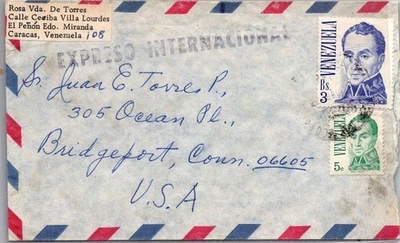 Rosa Vda. De Torres
Calle Ceiba Villa Lourdes
El Peñon Edo. Miranda
Caracas, Venezuela 108
EXPRESO INTERNACIONAL
VENEZUELA
Bs.
3
Sr. Juan E. Torres P.,
305 Ocean Pl.,
Bridgeport, Conn. 06605
U.S.A
VENEZUELA
5c